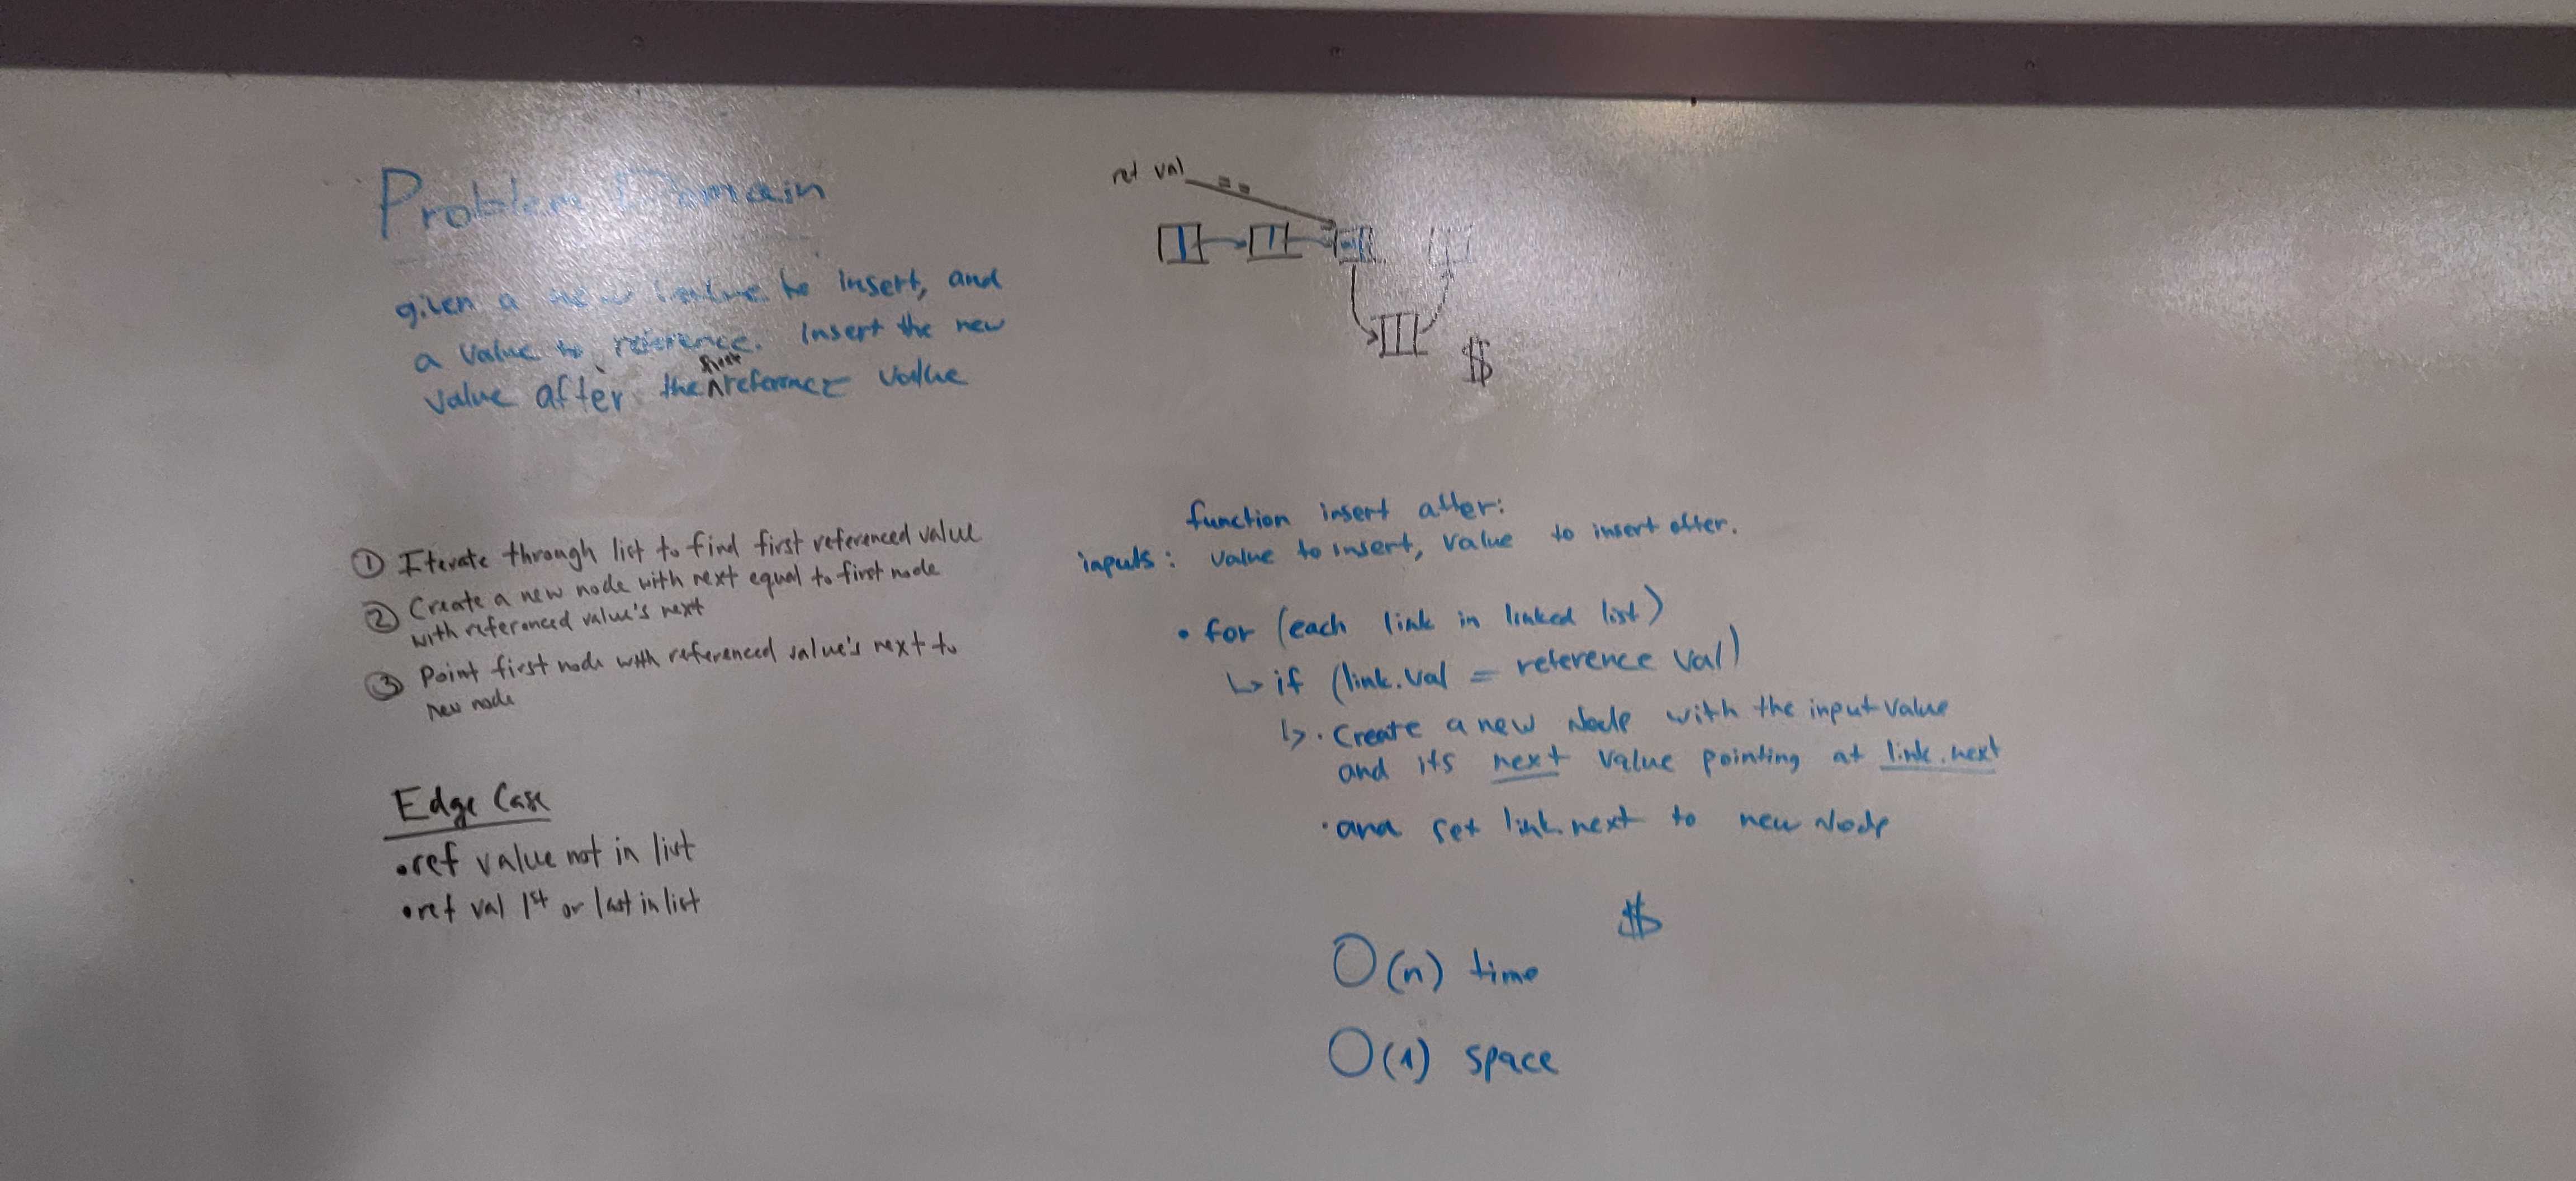 Problem Domain
given a new value to insert, and
a value to reference. Insert the new
value after the first reference value
① Iterate through list to find first referenced value
② Create a new node with next equal to first node
with referenced value's next
③ Point first node with referenced value's next to
new node
Edge Case
• ref value not in list
• ref val 1st or last in list
ref val ==
$
function insert after:
inputs: value to insert, value to insert after.
• for (each link in linked list)
↳ if (link.val = reference val)
↳ • Create a new Node with the input value
and its next value pointing at link.next
• and set link.next to new Node
$
O(n) time
O(1) space